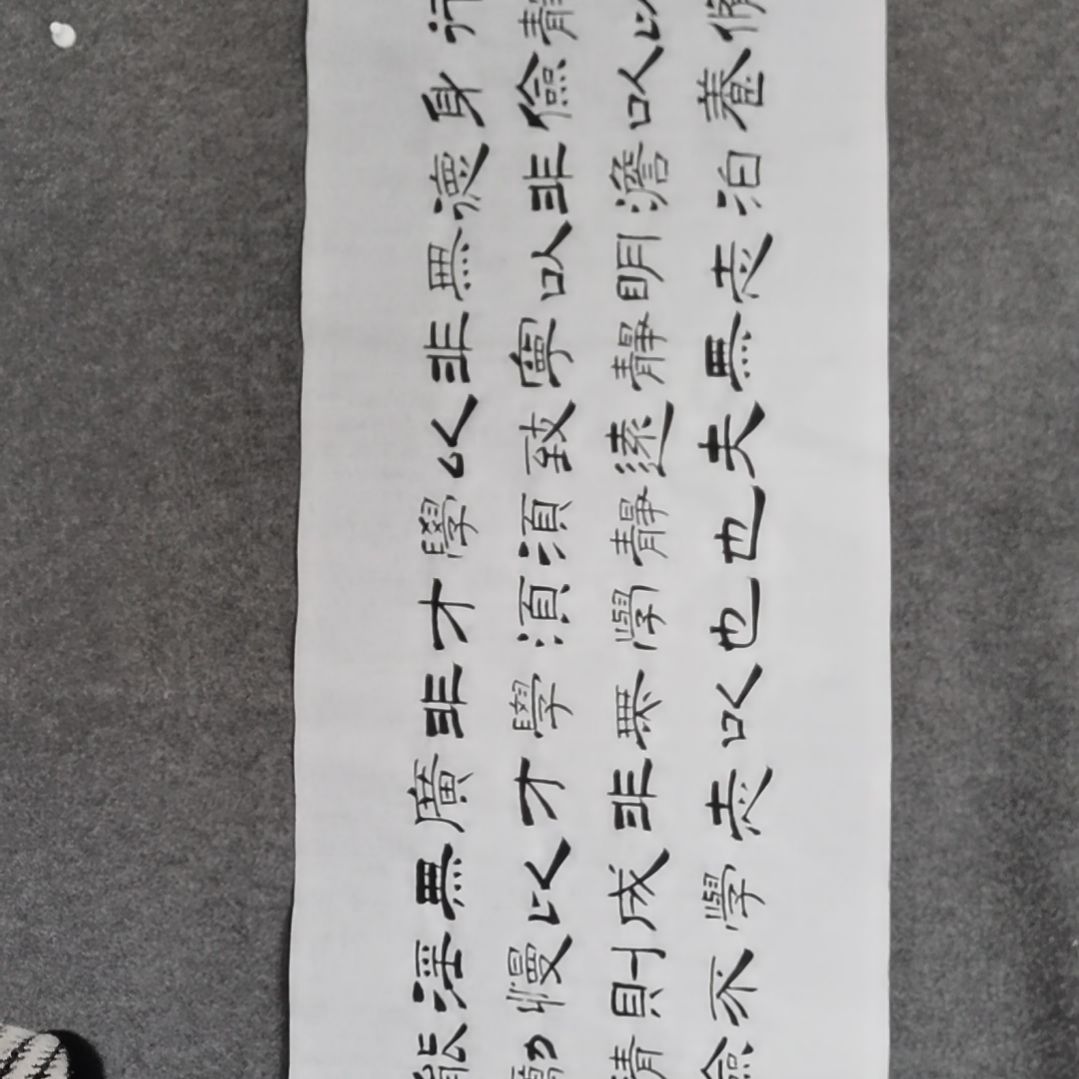 行靜以修
身儉以養
德非澹泊
無以明志
非寧靜無
以致遠夫
學須靜也
才須學也
非學無以
廣才非志
無以成學
淫慢則不
能勵精險